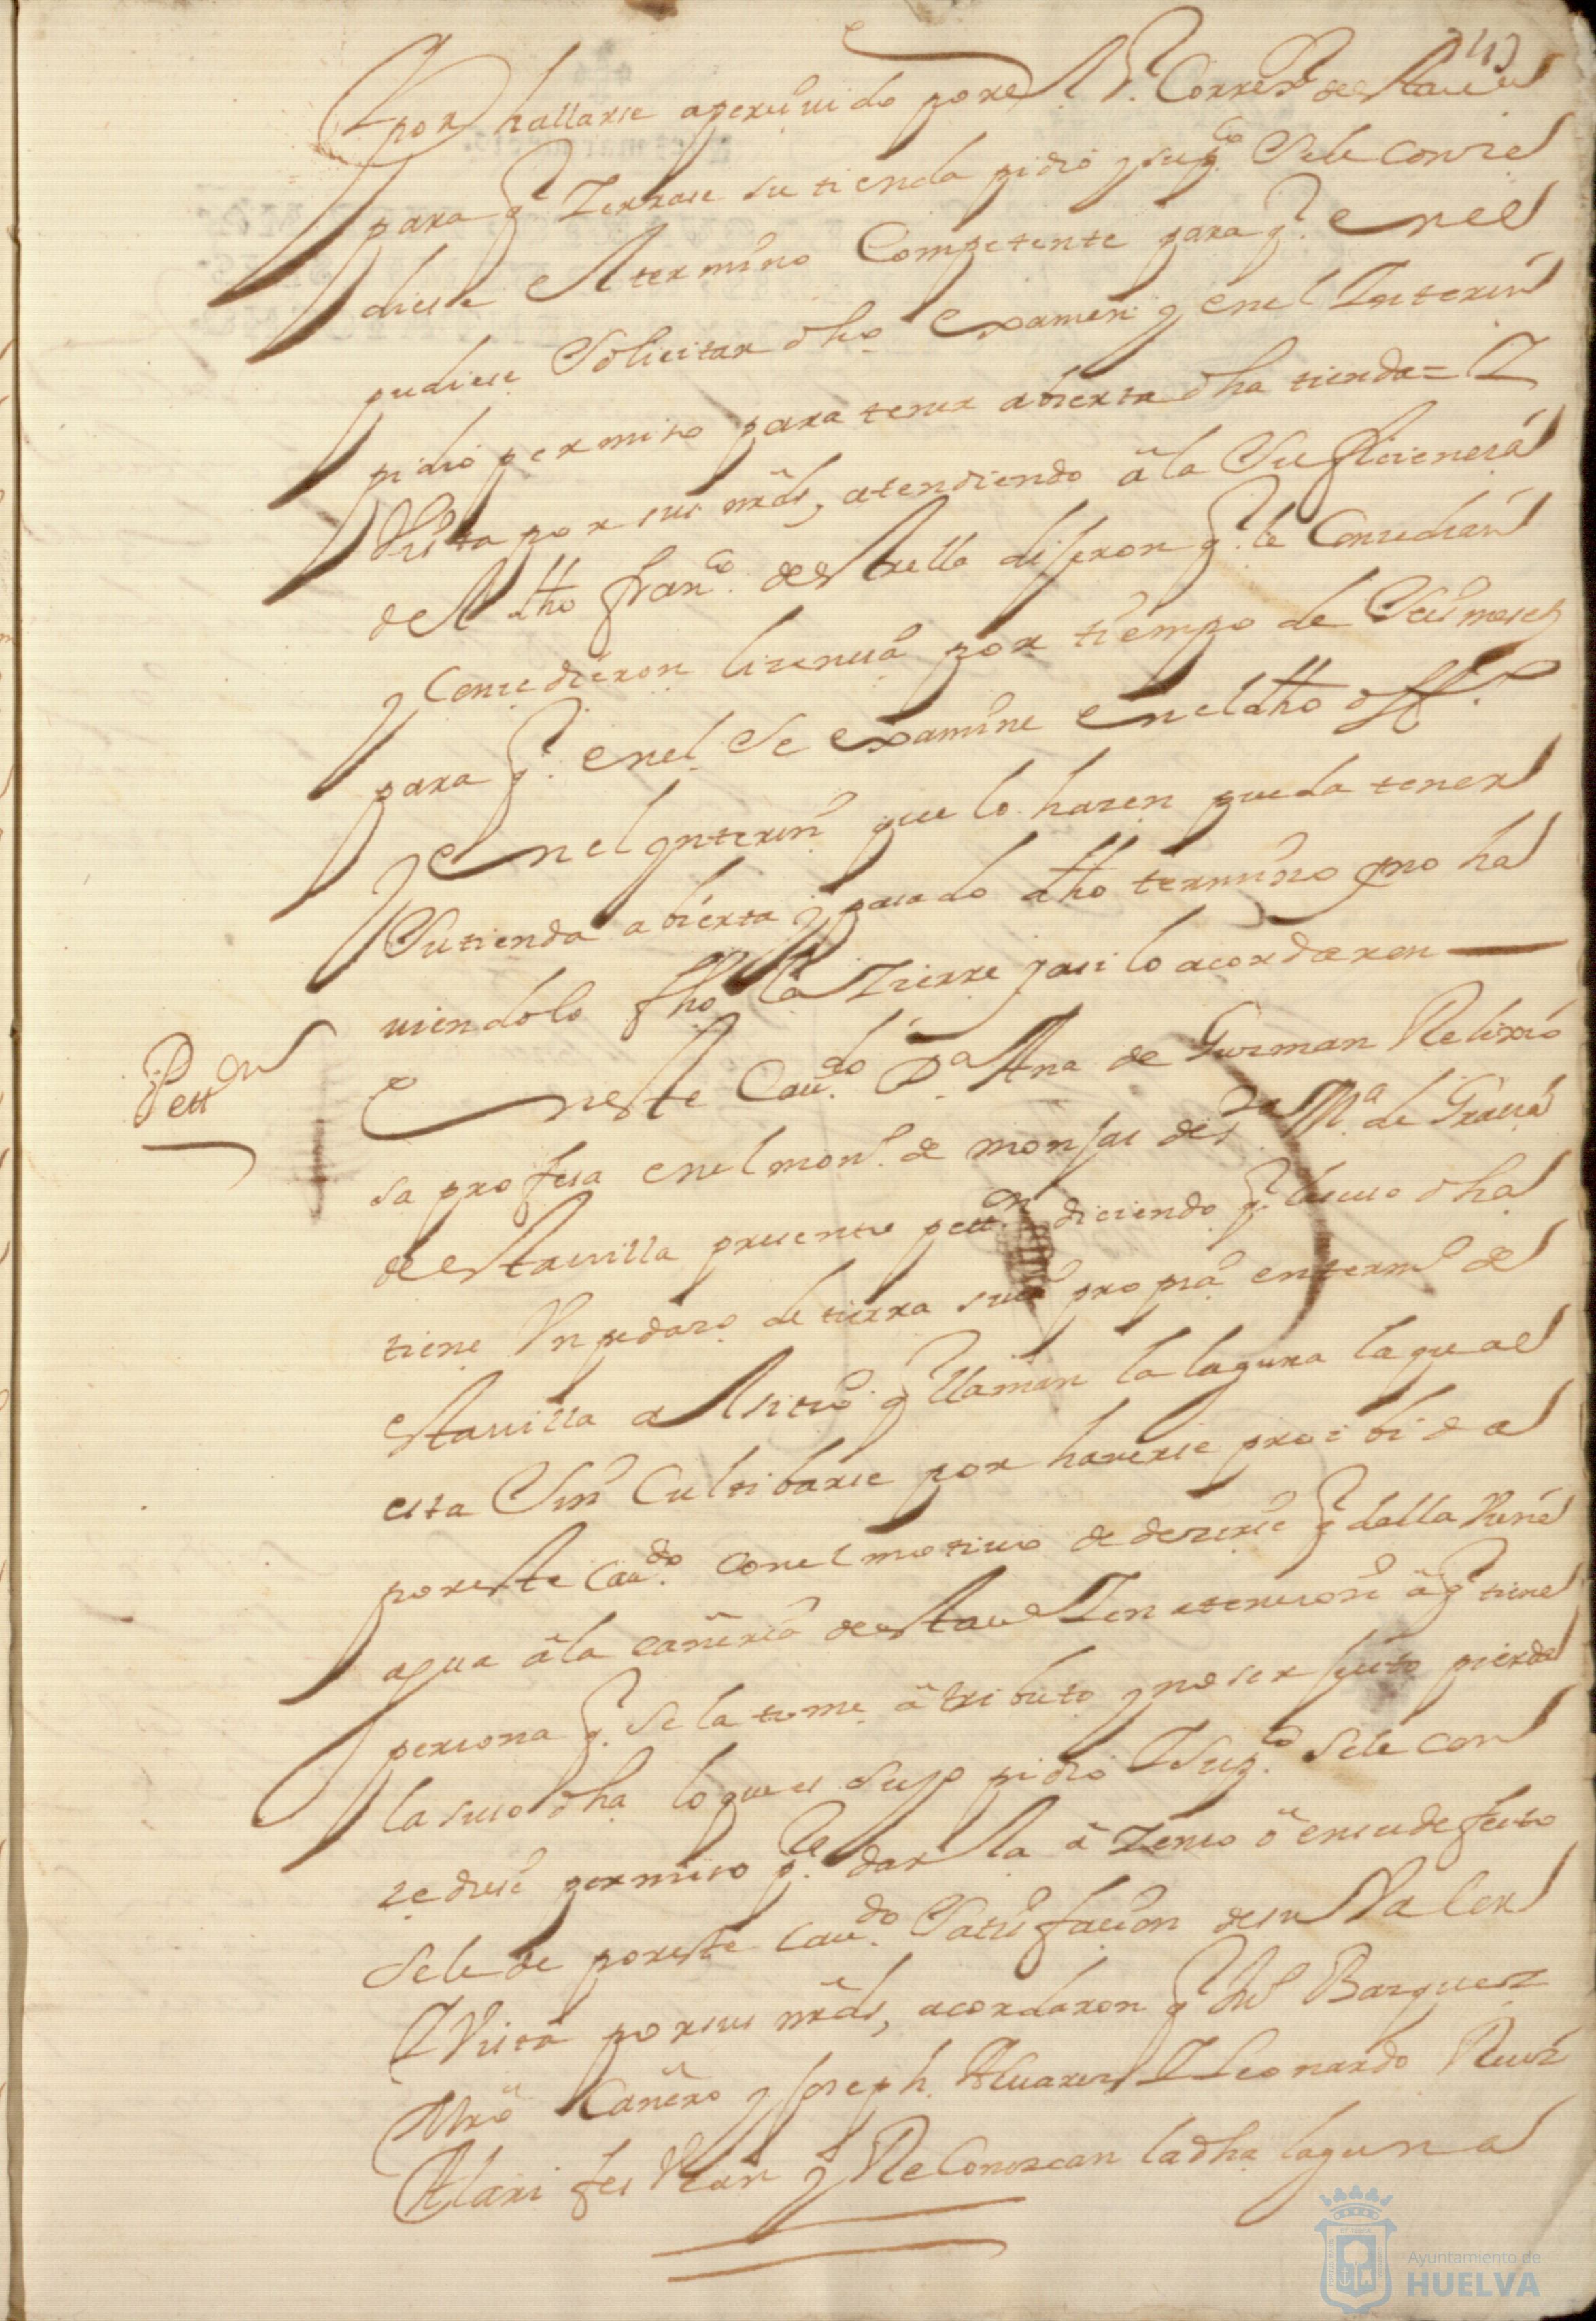 y por hallarse aperziuido por el Sr. Correxr. desta uilla
para q. Zerrase su tienda pidio y supco. Se le conze
diese el termino Competente para q. en el
pudiese Solicitar dho examen y en el Interin
pidio permiso para tener abierta dha tienda = Y
Vista por sus mrds, atendiendo â la Sufficiencia
del dho franco. de estrella dixeron q. le Conzedian
y Conzedieron lizencia por tiempo de Seis meses
para q. en el Se examine en el dho offo.
y en el ynterin que lo hazen pueda tener
Su tienda abierta y pasado dho termino y no ha
uiendolo fho la Zierre y asi lo acordaron —
Petton
En este Caudo. Da. Ana de Guzman Relixio
sa profesa en el mono. de monjas de sta Ma. de Gracia
de esta uilla presento petton diciendo q. la suso dha
tiene Vn pedazo de tierra suia propia en termo de
esta uilla al sitio q llaman la laguna la qual
esta Sin Cultibarse por hauerse proibida
por este Caudo. con el motiuo de dezirse q della Viene
agua â la cañeria de esta ua Y en atencion â q tiene
persona q. Se la tome â tributo y no ser justo pierda
la suso dha lo que es Suyo pidio Y Supco. Se le con
zediese permiso pa. darla â Zenso ô en su defecto
Se le de por este Caudo. Satisfacion de su Valor
Y Vista por sus mrds, acordaron q Ju Bazquez
Mro Cañero y Joseph Aluarez Y Leonardo Ruiz
Alarifes Vean y Reconozcan la dha laguna
Ayuntamiento de
HUELVA